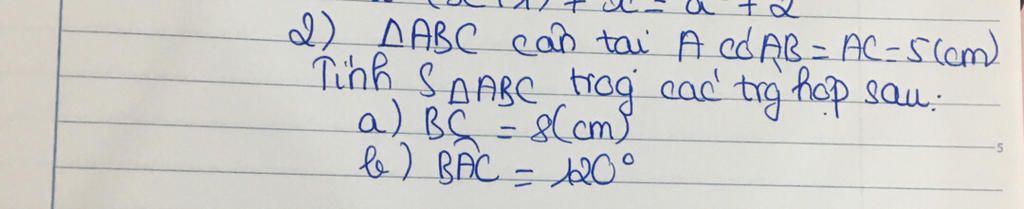 2) ΔABC cân tại A có AB = AC = 5(cm)
Tính S ΔABC trog các trg hợp sau:
a) BC = 8(cm)
b) BÂC = 120°
5